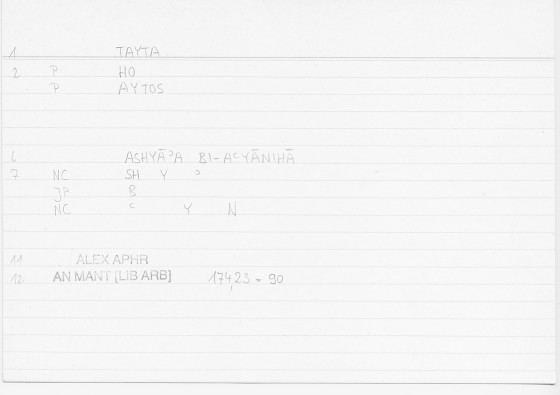 1 TAYTA
2 P HO
P AYTOS
6 ASHYĀʾA BI-AʿYĀNIHĀ
7 NC SH Y ʾ
JP B
NC ʿ Y N
11 ALEX APHR
12 AN MANT [LIB ARB] 174,23 - 90